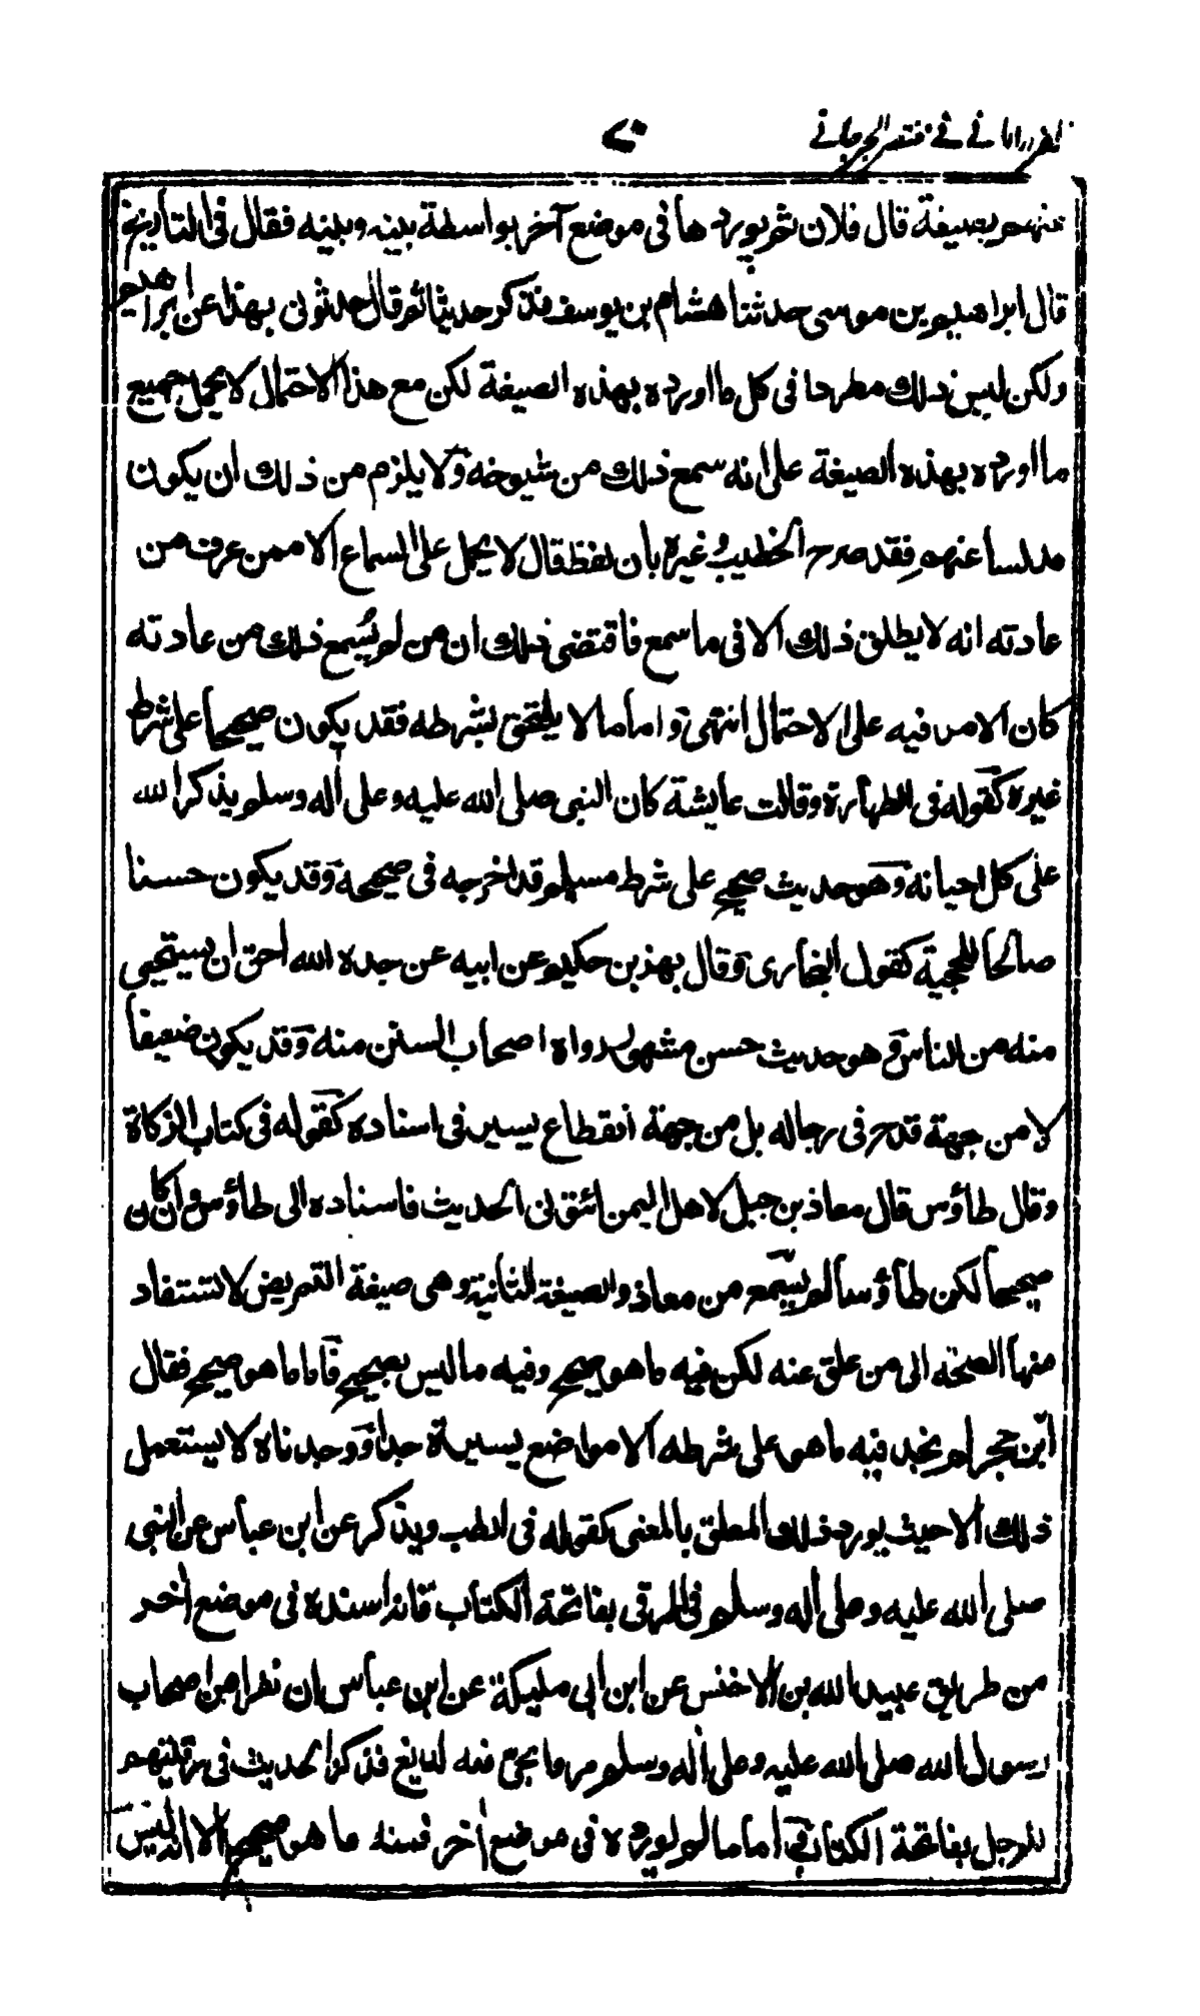 ظفر الاماني في مختصر الجرجاني
٧٠
عنهم بصيغة قال فلان ثم يوردها في موضع آخر بواسطة بينه وبينه فقال في التأريخ
قال ابراهيم بن موسى حدثنا هشام بن يوسف فذكر حديثا ثم قال حدثوني بهذا عن ابراهيم
ولكن ليس ذلك مطردا في كل ما اورده بهذه الصيغة لكن مع هذا الاحتمال لا يحمل جميع
ما اورده بهذه الصيغة على انه سمع ذلك من شيوخه ولا يلزم من ذلك ان يكون
مدلسا عنهم فقد صرح الخطيب وغيره بان لفظ قال لا يحمل على السماع الا ممن عرف من
عادته انه لا يطلق ذلك الا في ما سمع فاقتضى ذلك ان من لم يسمع ذلك من عادته
كان الامر فيه على الاحتمال انتهى واما ما لا يلتحق بشرطه فقد يكون صحيحا على شرط
غيره كقوله في الطهارة وقالت عايشة كان النبي صلى الله عليه وعلى أله وسلم يذكر الله
على كل احيانه وهو حديث صحيح على شرط مسلم قد اخرجه في صحيحه وقد يكون حسنا
صالحا للحجية كقول البخاري وقال بهز بن حكيم عن ابيه عن جده الله احق ان يستحيى
منه من الناس وهو حديث حسن مشهور رواه اصحاب السنن منه وقد يكون ضعيفا
لا من جهة قدح في رجاله بل من جهة انقطاع يسير في اسناده كقوله في كتاب الزكاة
وقال طاؤس قال معاذ بن جبل لاهل اليمن ائتوني الحديث فاسناده الى طاؤس وان كان
صحيحا لكن طاؤسا لم يسمع من معاذ والصيغة الثانية وهي صيغة التمريض لا تستفاد
منها الصحة الى من علق عنه لكن فيه ما هو صحيح وفيه ما ليس بصحيح فاما ما هو صحيح فقال
ابن حجر لم نجد فيه ما هو على شرطه الا مواضع يسيرة جدا ووجدناه لا يستعمل
ذلك الا حيث يورد ذلك المعلق بالمعنى كقوله في الطب ويذكر عن ابن عباس عن النبي
صلى الله عليه وعلى أله وسلم في الرقى بفاتحة الكتاب فانه اسنده في موضع أخر
من طريق عبيد الله بن الاخنس عن ابن ابي مليكة عن ابن عباس ان نفرا من اصحاب
رسول الله صلى الله عليه وعلى أله وسلم مروا بحي فيه لديغ فذكر الحديث في رقيتهم
للرجل بفاتحة الكتاب اما ما لم يورده في موضع أخر فمنه ما هو صحيح الا انه ليس